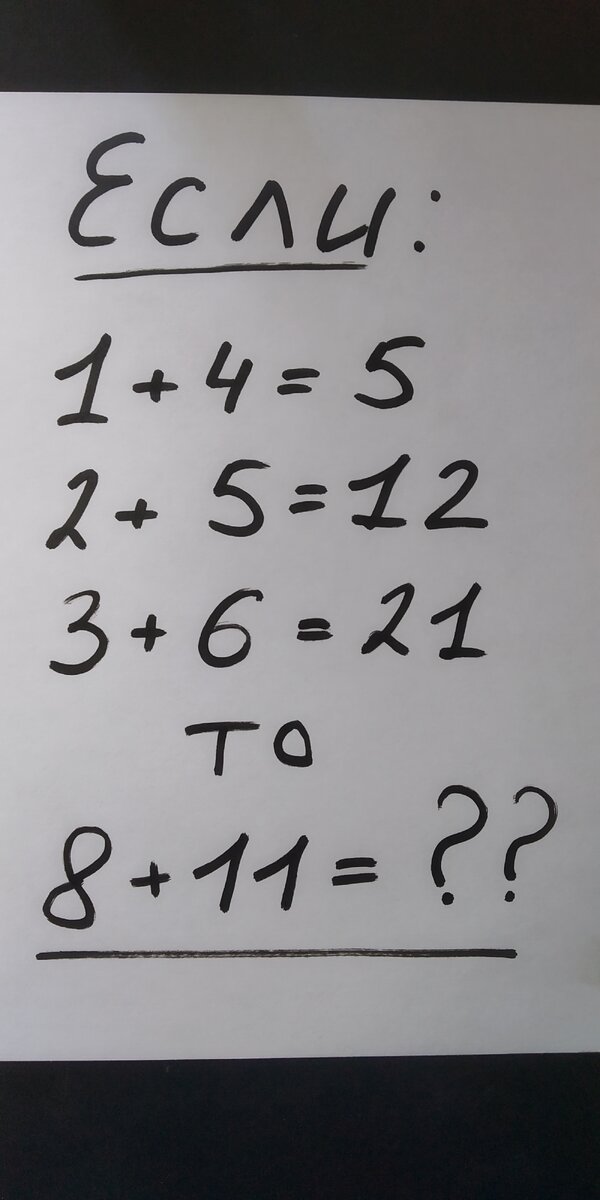 Если:
1 + 4 = 5
2 + 5 = 12
3 + 6 = 21
то
8 + 11 = ??